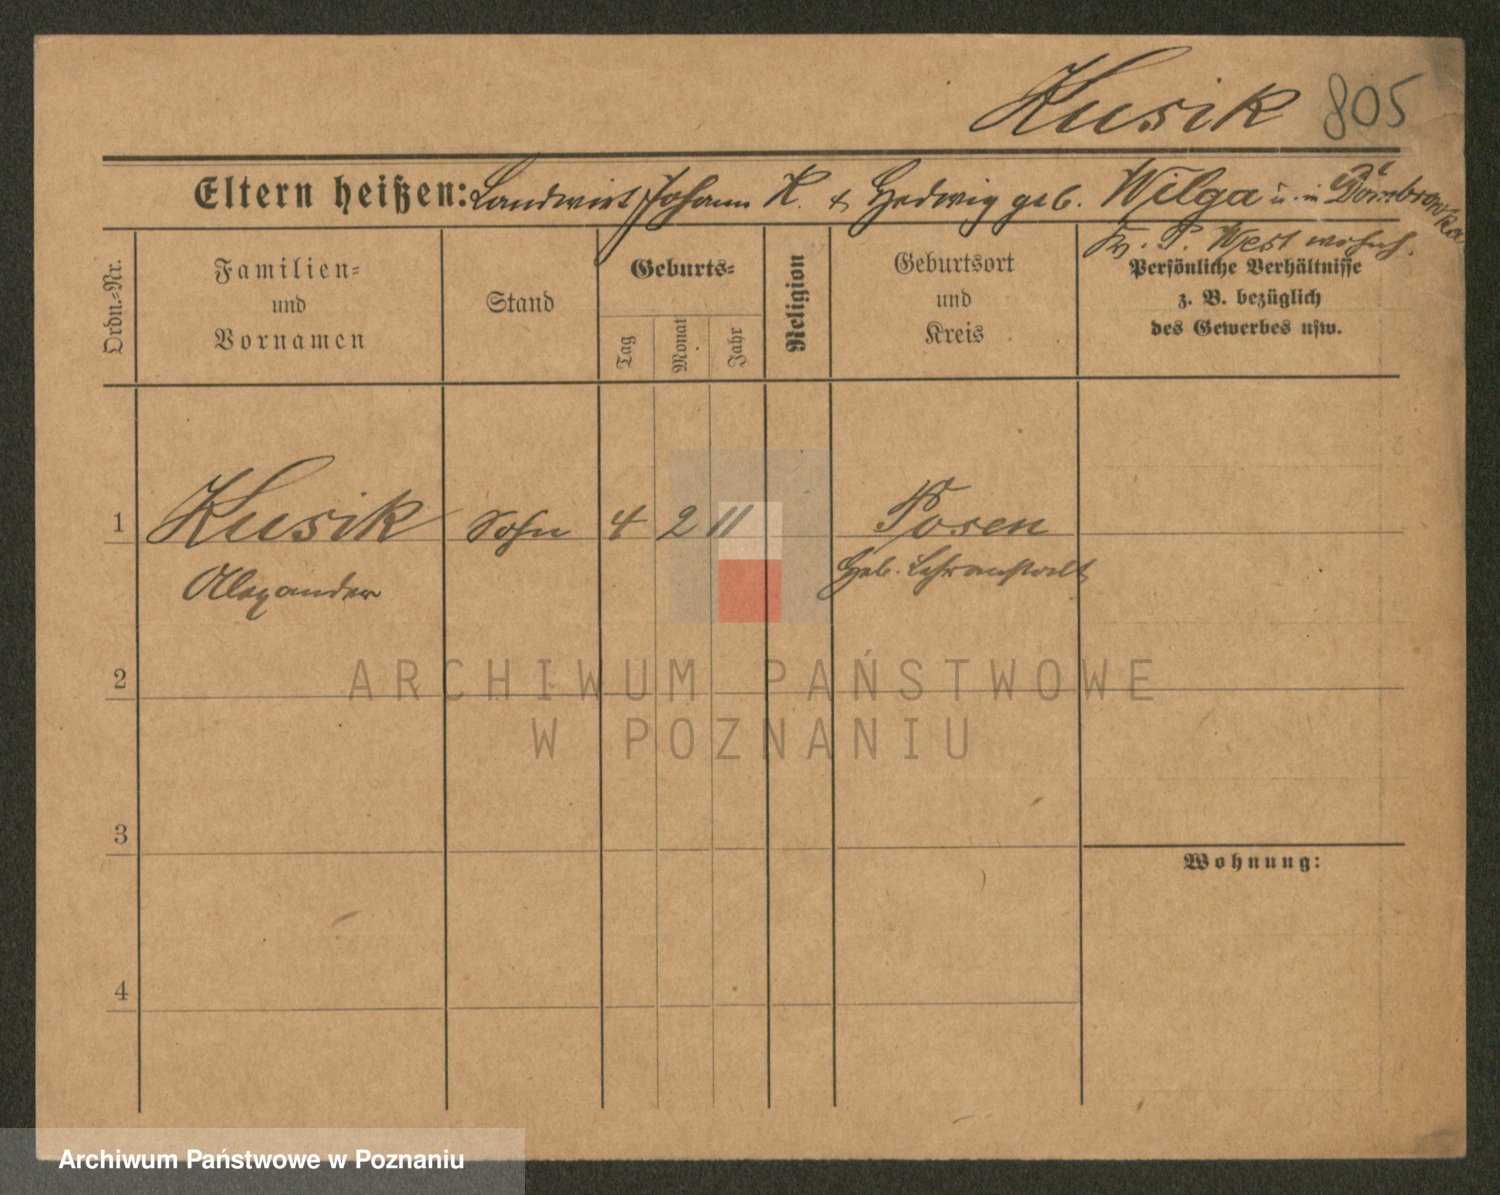 Kusik 805
Eltern heißen: Landwirt Johann K. & Hedwig geb. Wilga u. in Dombrowka
Kr. P. West wohnh.
Ordn.=Nr.
Familien=
und
Vornamen
Stand
Geburts=
Tag
Monat
Jahr
Religion
Geburtsort
und
Kreis
Persönliche Verhältnisse
z. B. bezüglich
des Gewerbes usw.
1 Kusik Sohn 4 2 11 Posen
Alexander Heb. Lehranstalt
2
3
Wohnung:
4
ARCHIWUM PAŃSTWOWE
W POZNANIU
Archiwum Państwowe w Poznaniu